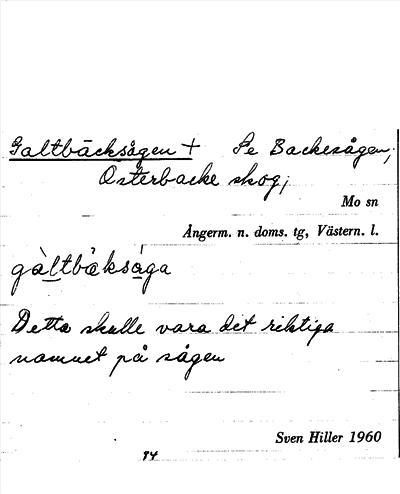 Galtbäcksågen + Se Backesågen,
Österbacke skog,
Mo sn
Ångerm. n. doms. tg, Västern. l.
gàltbǻksága
Detta skulle vara det riktiga
namnet på sågen
Sven Hiller 1960
84